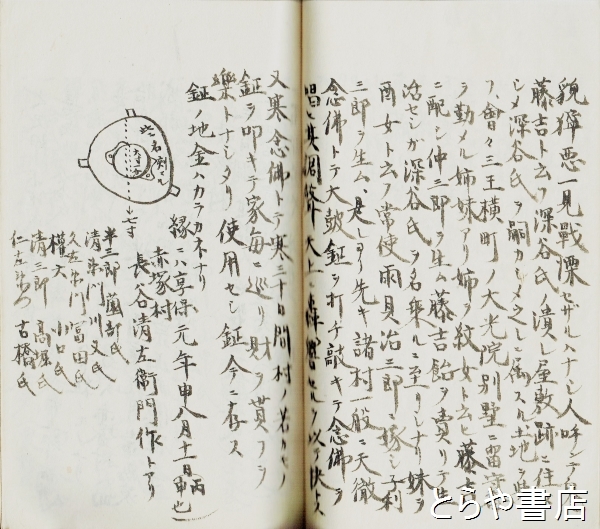 貌獰悪一見戦慄セザルハナシ人呼ンテ
藤吉ト云フ深谷氏ノ潰レ屋敷跡ニ住
シメ深谷氏ヲ嗣カシメ之レニ属スル土地ヲ
フ、會々三王横町ノ大光院別墅ニ留守
ヲ勤メル姉妹アリ姉ヲ紋女ト云ヒ藤吉
ニ配シ仲三郎ヲ生ム藤吉飴ヲ賣リテ生
活セシガ深谷氏ヲ名乗ルニ至リシナリ妹ヲ
酉女ト云フ常使雨貝治三郎ニ嫁シ子利
三郎ヲ生ム、是レヨリ先キ諸村一般ニ天徹
念佛トテ大鼓鉦ヲ打チ敲キテ念佛ヲ
唱ヒ其調
又寒念佛トテ寒三十日間村ノ若キモノ
鉦ヲ叩キテ家毎ニ巡リ財ヲ貰フヲ
樂トナシタリ使用セシ鉦今ニ存ス
鉦ノ地金ハカラカネナリ
縁ニハ享保元年申八月十一日丙申也
赤塚村
長谷清左衛門作トアリ
此名刻アル
七寸
半三郎 薗部氏
清右衛門 川又氏
久左衛門 富田氏
權六 小口氏
清三郎 高堀氏
仁左衛門 古橋氏
とらや書店